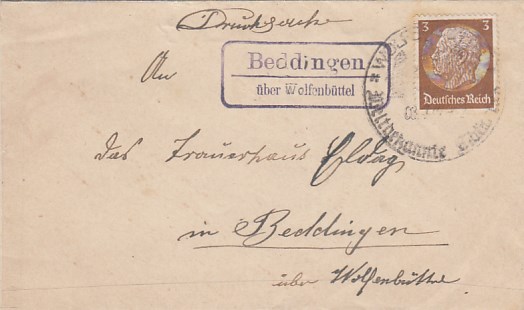 Drucksache
3 3
Deutsches Reich
Beddingen
über Wolfenbüttel
An
das Trauerhaus Eldag
in Beddingen
über Wolfenbüttel